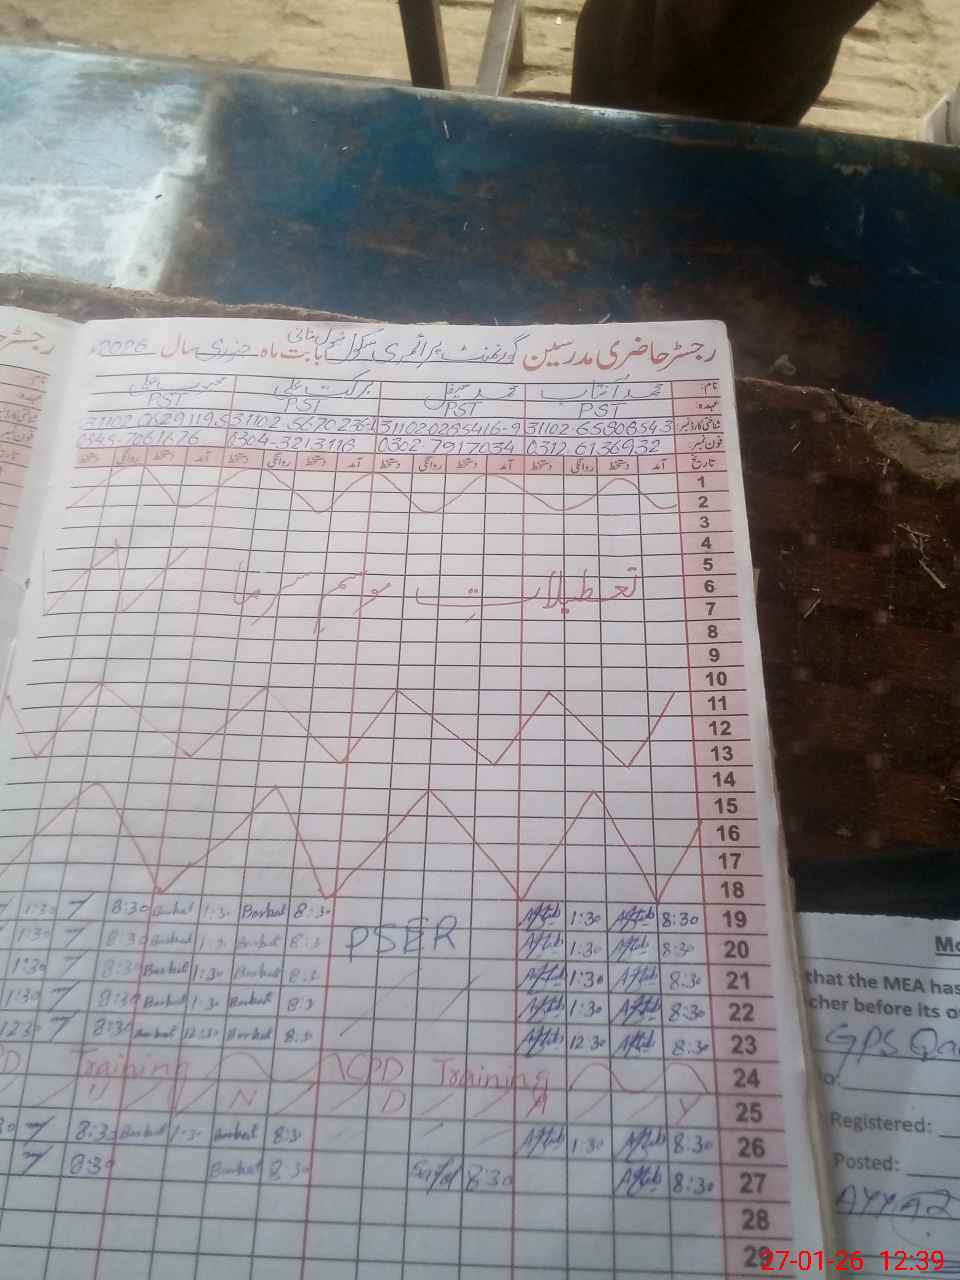 رجسٹر حاضری مدرسین گورنمنٹ پرائمری سکول بابت ماہ جنوری سال 2026
نام: محمد آفتاب محمد برکت علی
عہدہ: PST PST PST PST
شناختی کارڈ نمبر 31102 6580854-3 31102 0285416-9 31102
فون نمبر: 0312 6136932 0302 7917034 0304-3213116 0345-7061676
تاریخ آمد دستخط روانگی دستخط آمد دستخط روانگی دستخط آمد دستخط روانگی دستخط روانگی دستخط
1
2
3
4
5
تعطیلات موسم سرما
6
7
8
9
10
11
12
13
14
15
16
17
18
19 8:30 Aftab 1:30 Aftab 8:30 Barkat 1:30 Barkat 8:30 1:30
PSER
20 8:30 Aftab 1:30 Aftab 8:30 Barkat 1:30 Barkat 8:30 1:30
21 8:30 Aftab 1:30 Aftab 8:30 Barkat 1:30 Barkat 8:30 1:30
22 8:30 Aftab 1:30 Aftab 8:30 Barkat 1:30 Barkat 8:30 1:30
23 8:30 Aftab 12:30 Aftab 8:30 Barkat 12:30 Barkat 8:30 1230
PD Training CPD Training 24
U N D A Y 25
26 8:30 Aftab 1:30 Aftab 8:30 Barkat 1:30 Barkat 8:30
27 8:30 Aftab 8:30 8:30 Barkat 8:30
28
29
that the MEA has
cher before its o
GPS
Registered:
Posted:
27-01-26 12:39